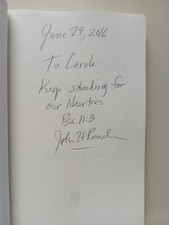 June 29, 2016
To Carole
Keep standing for
our liberties
Psc. 11:3
John H